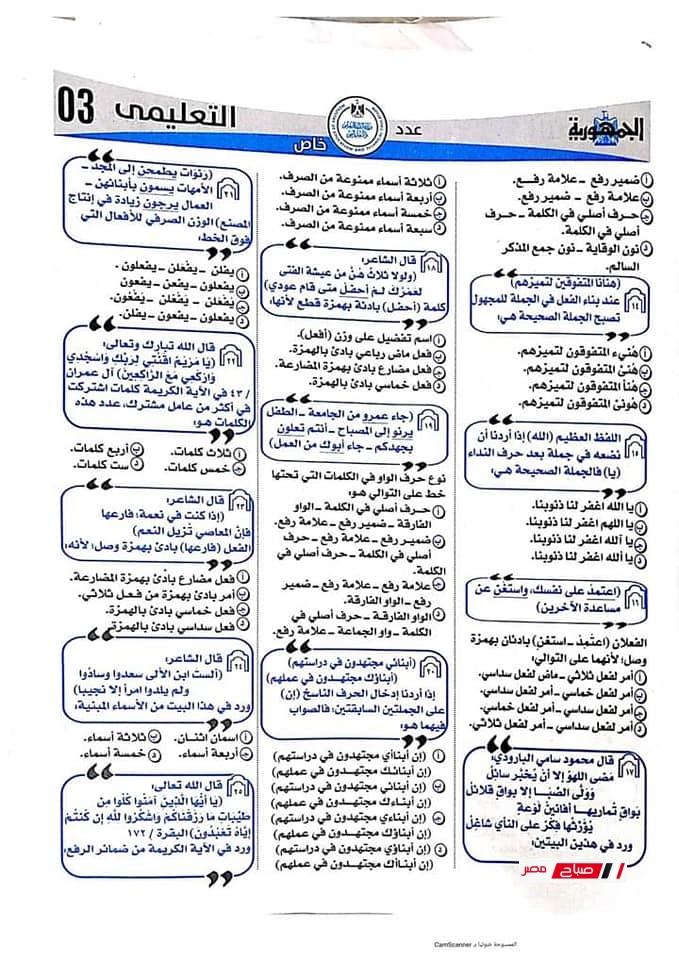 الجمهورية
عدد
خاص
التعليمى 03
أ ضمير رفع - علامة رفع.
ب علامة رفع - ضمير رفع.
ج حرف أصلي في الكلمة - حرف
أصلي في الكلمة.
د نون الوقاية - نون جمع المذكر
السالم.
١٤
(هنأنا المتفوقين لتميزهم)
عند بناء الفعل في الجملة للمجهول
تصبح الجملة الصحيحة هي:
أ هُنيء المتفوقون لتميزهم.
ب هُنئ المتفوقون لتميزهم.
ج هُنأ المتفوقون لتميزهم.
د هُونئ المتفوقون لتميزهم.
١٥
اللفظ العظيم (الله) إذا أردنا أن
نضعه في جملة بعد حرف النداء
(يا) فالجملة الصحيحة هي:
أ يا الله اغفر لنا ذنوبنا.
ب يا اللهم اغفر لنا ذنوبنا.
ج يا آلله اغفر لنا ذنوبنا.
د يا ألله اغفر لنا ذنوبنا.
١٦
(اعتمدْ على نفسك، واستغْنِ عن
مساعدة الآخرين)
الفعلان (اعتمدْ - استغنِ) بادئان بهمزة
وصل؛ لأنهما على التوالي:
أ أمر لفعل ثلاثي - ماض لفعل سداسي.
ب أمر لفعل خماسي - أمر لفعل سداسي.
ج أمر لفعل سداسي - أمر لفعل خماسي.
د أمر لفعل سداسي - أمر لفعل ثلاثي.
١٧
قال محمود سامي البارودي:
مَضى اللهوُ إلا أنْ يُخبَّر سائلُ
وَوَلَّى الصِّبَا إلا بواقٍ قلائلُ
بَواقٍ تُماريها أفانينُ لَوْعَةٍ
يُوَرِّثها فِكْرٌ على النأي شاغِلُ
ورد في هذين البيتين:
أ ثلاثة أسماء ممنوعة من الصرف.
ب أربعة أسماء ممنوعة من الصرف.
ج خمسة أسماء ممنوعة من الصرف.
د سبعة أسماء ممنوعة من الصرف.
١٨
قال الشاعر:
(ولولا ثلاثٌ هُنَّ من عيشة الفتى
لعَمْرُكَ لمْ أحفلْ متى قام عودي)
كلمة (أحفل) بادئة بهمزة قطع لأنها:
أ اسم تفضيل على وزن (أفعل).
ب فعل ماض رباعي بادئ بالهمزة.
ج فعل مضارع بادئ بهمزة المضارعة.
د فعل خماسي بادئ بالهمزة.
١٩
(جاء عمرو من الجامعة - الطفل
يرنو إلى المصباح - أنتم تعلون
بجهدكم - جاء أبوك من العمل)
نوع حرف الواو في الكلمات التي تحتها
خط على التوالي هو:
أ حرف أصلي في الكلمة - الواو
الفارقة - ضمير رفع - علامة رفع.
ب ضمير رفع - علامة رفع - حرف
أصلي في الكلمة - حرف أصلي في
الكلمة.
ج علامة رفع - علامة رفع - ضمير
رفع - الواو الفارقة.
د الواو الفارقة - حرف أصلي في
الكلمة - واو الجماعة - علامة رفع.
٢٠
(أبنائي مجتهدون في دراستهم)
(أبناؤك مجتهدون في عملهم)
إذا أردنا إدخال الحرف الناسخ (إن)
على الجملتين السابقتين؛ فالصواب
فيهما هو:
أ (إن أبناأي مجتهدون في دراستهم)
(إن أبنائك مجتهدون في عملهم)
ب (إن أبنائي مجتهدون في دراستهم)
(إن أبناءك مجتهدون في عملهم)
ج (إن أبناءي مجتهدون في دراستهم)
(إن أبناؤك مجتهدون في عملهم)
د (إن أبناؤي مجتهدون في دراستهم)
(إن أبناأك مجتهدون في عملهم)
٢١
(رَنَوَات يطمحن إلى المجد -
الأمهات يسمون بأبنائهن -
العمال يرجون زيادة في إنتاج
المصنع) الوزن الصرفي للأفعال التي
فوق الخط:
أ يفلن - يفْعَلن - يفعلون.
ب يفعلون - يفعن - يفعون
ج يَفْعَلْن - يَفْعُلْن - يَفْعُون.
د يفعلون - يفعون - يفلن.
٢٢
قال الله تبارك وتعالى:
(يَا مَرْيَمُ اقْنُتِي لِرَبِّكِ وَاسْجُدِي
وَارْكَعِي مَعَ الرَّاكِعِينَ) آل عمران
/ ٤٣ في الآية الكريمة كلمات اشتركت
في أكثر من عامل مشترك، عدد هذه
الكلمات هو:
أ ثلاث كلمات. ب أربع كلمات.
ج خمس كلمات. د ست كلمات.
٢٣
قال الشاعر:
(إذا كنت في نعمة؛ فارعها
فإنَّ المعاصي تُزيل النعم)
الفعل (فارعها) بادئ بهمزة وصل؛ لأنه:
أ فعل مضارع بادئ بهمزة المضارعة.
ب أمر بادئ بهمزة من فعل ثلاثي.
ج فعل خماسي بادئ بالهمزة.
د فعل سداسي بادئ بالهمزة
٢٤
قال الشاعر:
(ألست ابن الألى سعدوا وسادُوا
ولم يلدوا امرأ إلا نجيبا)
ورد في هذا البيت من الأسماء المبنية:
أ اسمان اثنان. ب ثلاثة أسماء.
ج أربعة أسماء. د خمسة أسماء.
٢٥
قال الله تعالى:
(يَا أَيُّهَا الَّذِينَ آمَنُوا كُلُوا مِن
طَيِّبَاتِ مَا رَزَقْنَاكُمْ وَاشْكُرُوا لِلَّهِ إِن كُنتُمْ
إِيَّاهُ تَعْبُدُونَ) البقرة / ١٧٢
ورد في الآية الكريمة من ضمائر الرفع:
صباح مصر
الممسوحة ضوئيا بـ CamScanner